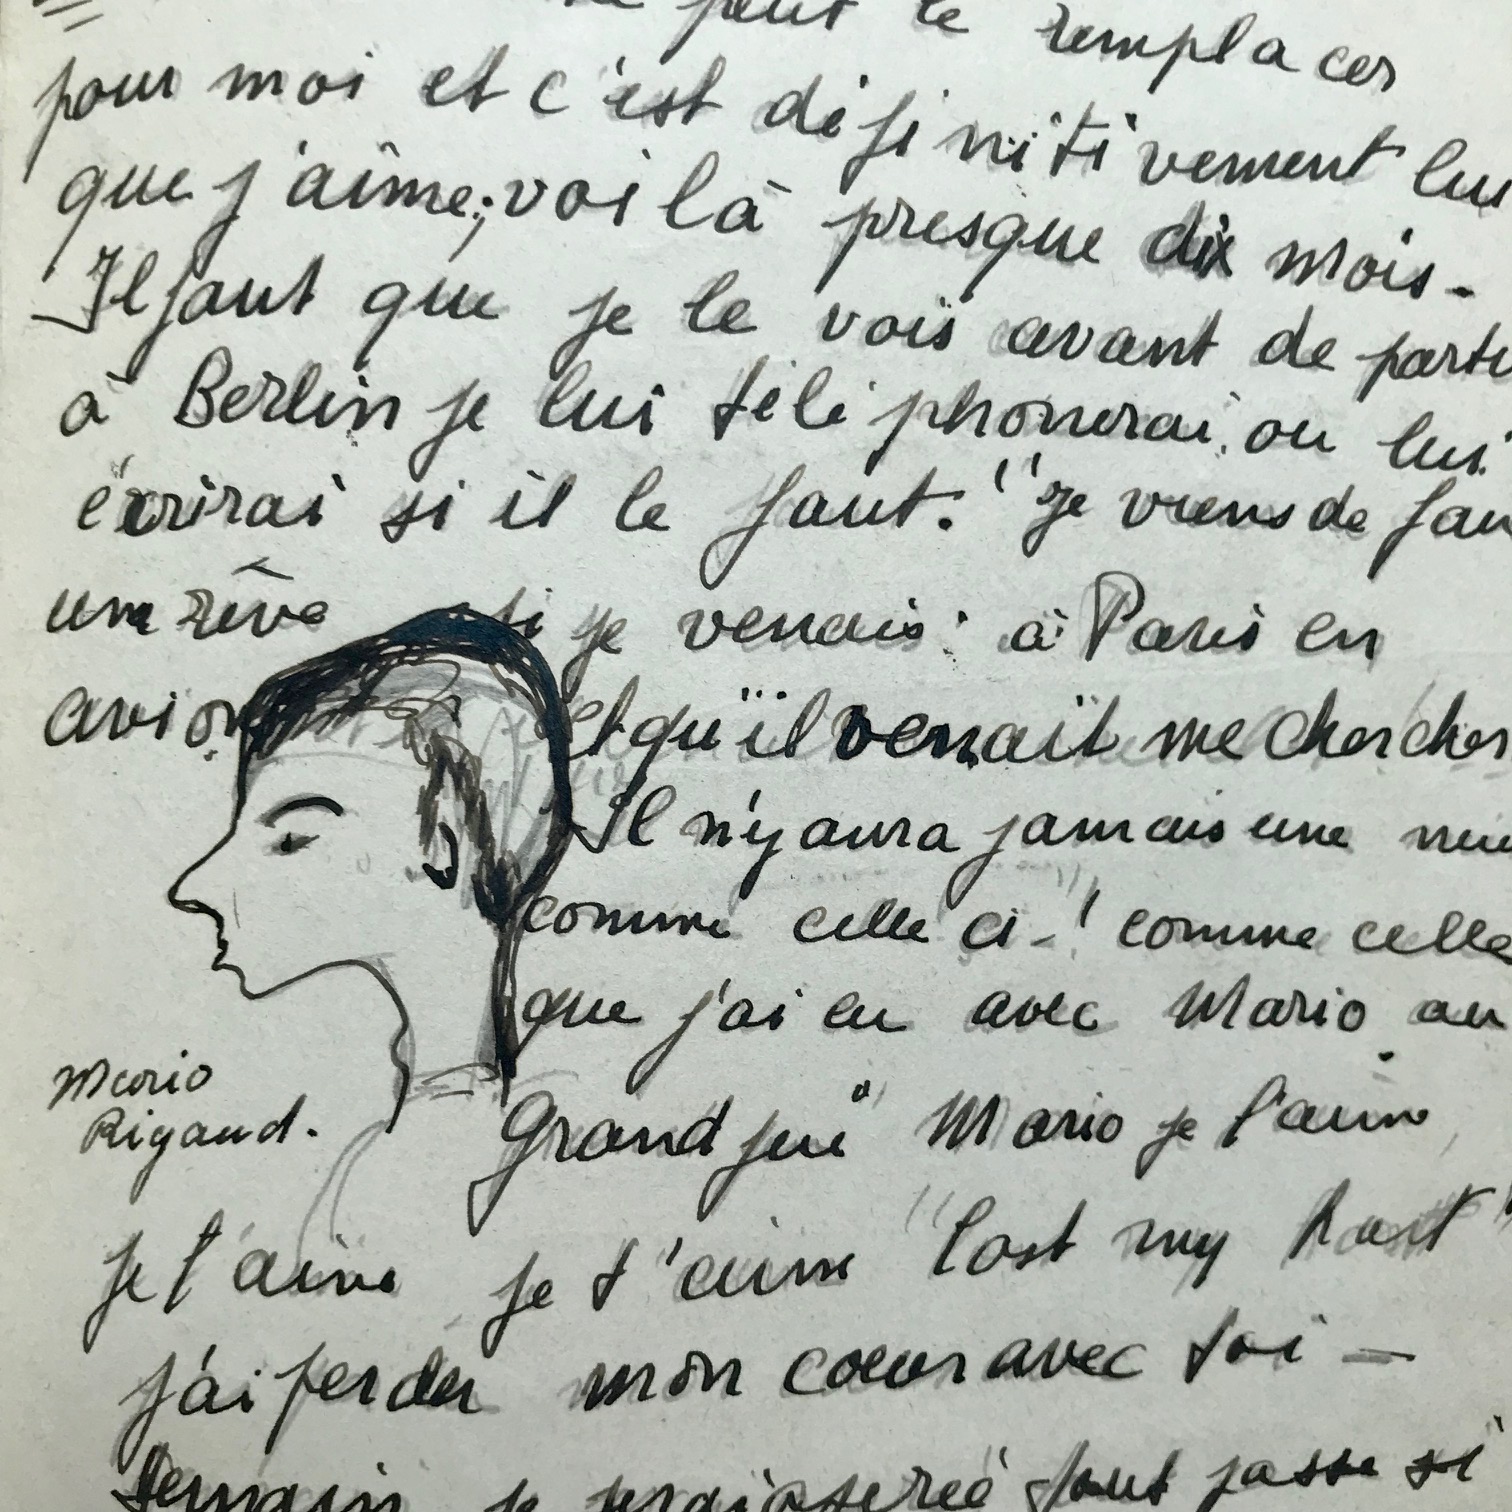 peut le remplacer
pour moi et c'est définitivement lui
que j'aime; voilà presque dix mois.
Il faut que je le vois avant de parti
à Berlin je lui téléphonerai ou lui
écrirai si il le faut. "Je viens de fai
un rêve si je venais à Paris en
avion et qu'il venait me chercher
Il n'y aura jamais une nui
comme celle ci-! comme celle
que j'ai eu avec Mario au
Mario
Rigaud.
Grand Mario je t'aime
je t'aime je t'aime "lost my hart"
j'ai perdu mon coeur avec toi -
Demain je tout passe si